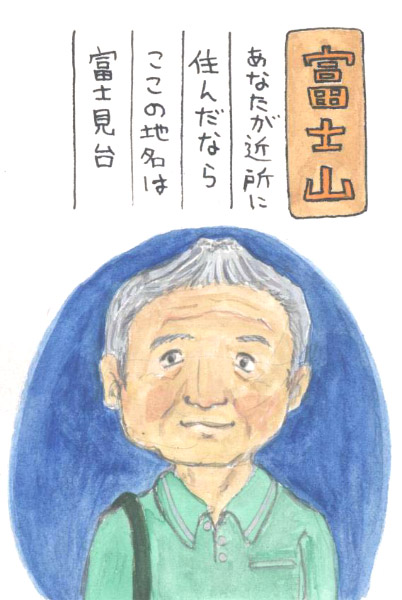 富士山
あなたが近所に
住んだなら
ここの地名は
富士見台